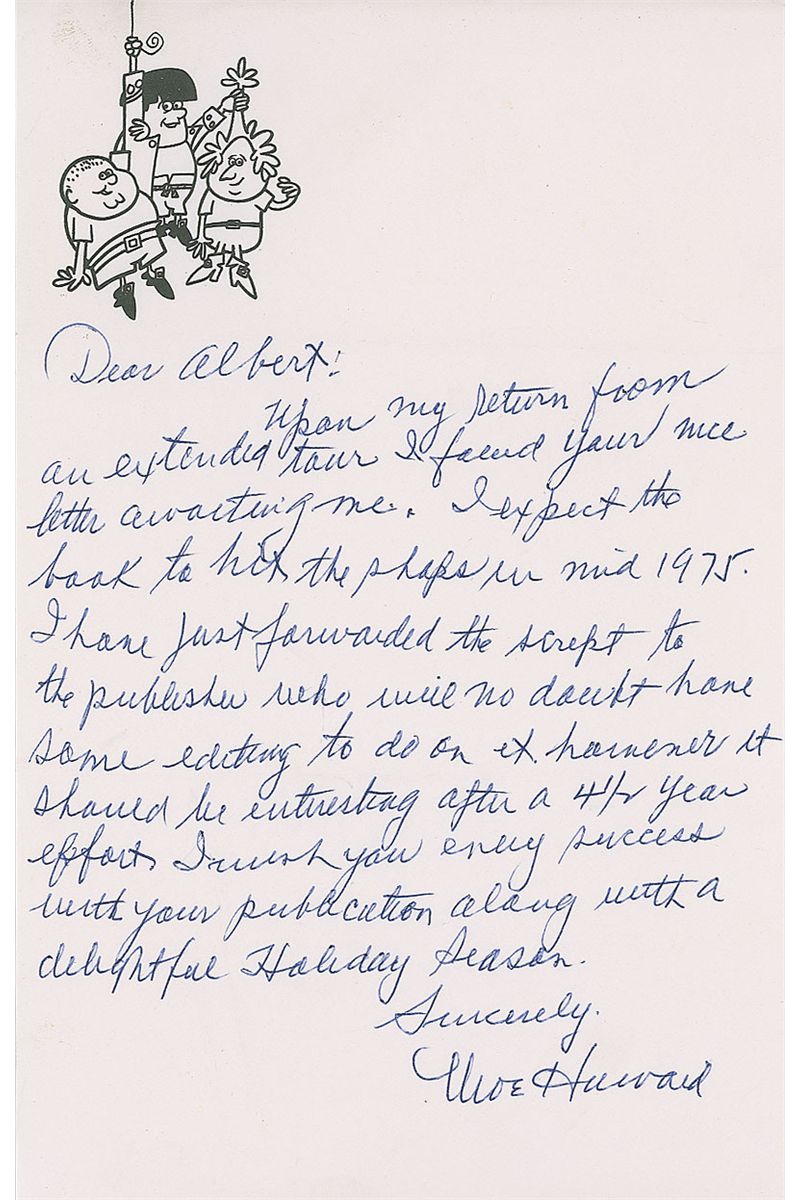 Dear Albert:
Upon my return from
an extended tour I found your nice
letter awaiting me. I expect the
book to hit the shops in mid 1975.
I have just forwarded the script to
the publisher who will no doubt have
some editing to do on it. however it
should be interesting after a 4 1/2 year
effort. I wish you every success
with your publication along with a
delightful Holiday Season.
Sincerely.
Moe Howard